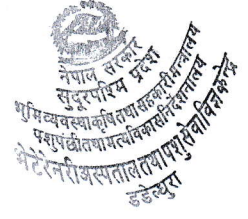 नेपाल सरकार
सुदूरपश्चिम प्रदेश
भूमि व्यवस्था कृषि तथा सहकारी मन्त्रालय
पशुपंछी तथा मत्स्य विकास निर्देशनालय
भेटेरिनरी अस्पताल तथा पशु सेवा विज्ञ केन्द्र
डडेल्धुरा